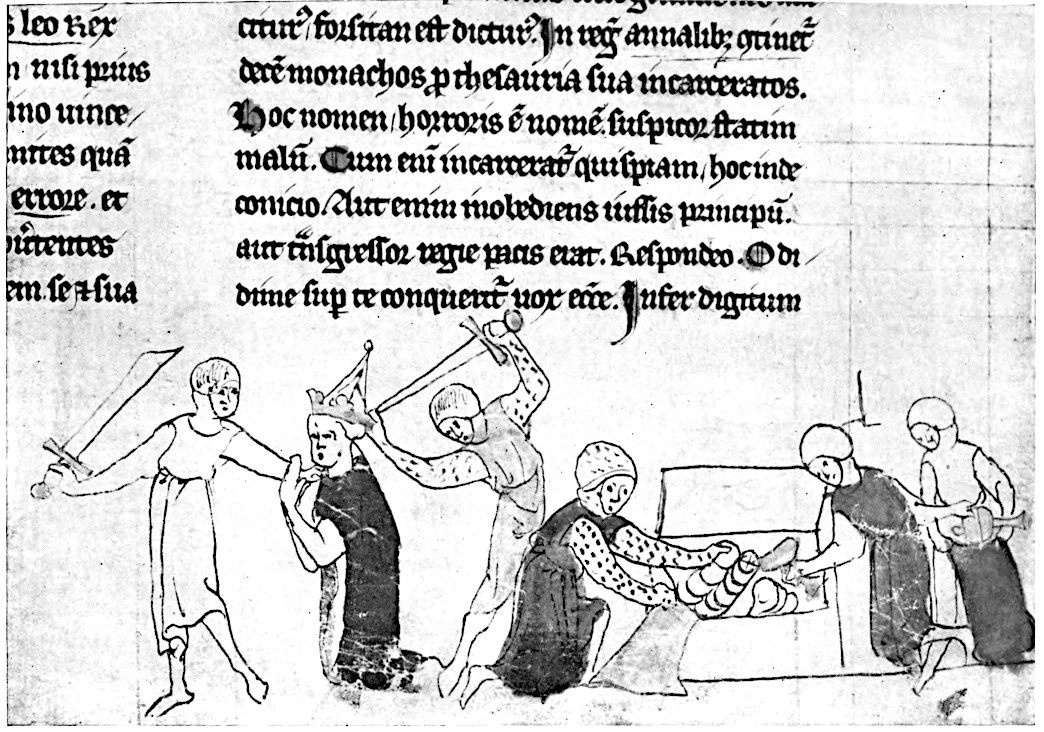 s leo Rex
n nisi prius
ino uince
mites quã
errore. et
utentes
em. se ⁊ sua
citur̉ / forsitan est dictur̉. In reg̃ annalibꝫ ꝯtinet̃
decẽ monachos ꝓ thesauria sua incarceratos.
Hoc nomen / horroris ẽ nomẽ. suspicor statim
malũ. Cum eni incarcerat̃ quispiam / hoc inde
conicio / Aut enim inobediens iussis principũ.
aut tñsgressor regie pacis erat. Respondeo. O di
dime suꝑ te conquerit̃ uox ecc̃e. Infer digitum